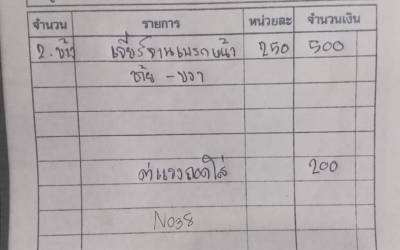 จำนวน รายการ หน่วยละ จำนวนเงิน
2.ข้าง เจียร์จานเบรกหน้า 250 500
ซ้าย - ขวา
ค่าแรงถอดใส่ 200
No38